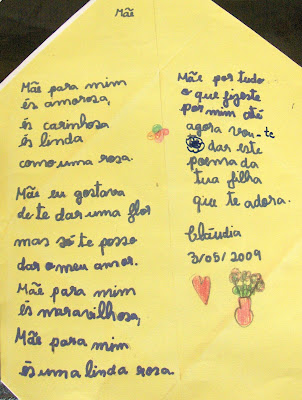 Mãe
Mãe para mim
és amorosa,
és carinhosa
és linda
como uma rosa.
Mãe eu gostava
de te dar uma flor
mas só te posso
dar o meu amor.
Mãe para mim
és maravilhosa,
Mãe para mim
és uma linda rosa.
Mãe por tudo
o que fizeste
por mim até
agora vou-te
dar este
poema da
tua filha
que te adora.
Cláudia
3/05/2009